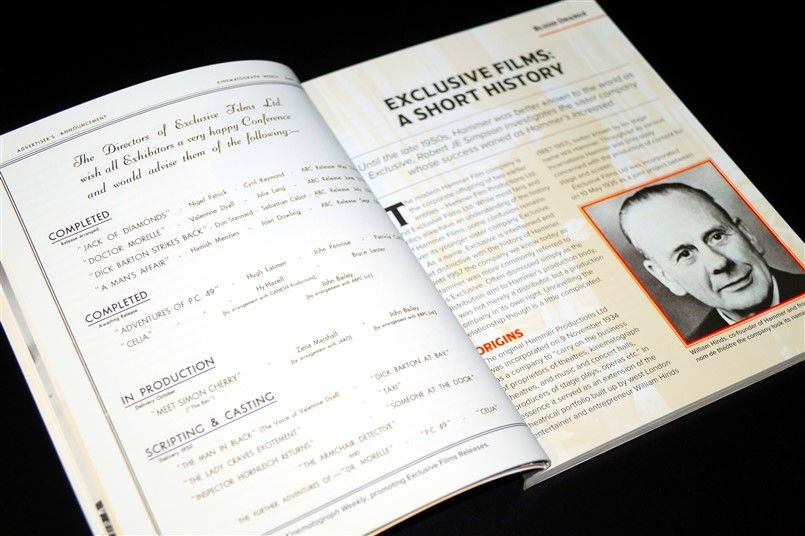 ADVERTISER'S ANNOUNCEMENT
KINEMATOGRAPH WEEKLY
The Directors of Exclusive Films Ltd.
wish all Exhibitors a very happy Conference
and would advise them of the following—
COMPLETED
Release arranged
"JACK OF DIAMONDS" · Nigel Patrick · Cyril Raymond · ABC Release
"DOCTOR MORELLE" · Valentine Dyall · Julia Lang · ABC Release June
"DICK BARTON STRIKES BACK" · Don Stannard · Sebastian Cabot · ABC Release July
"A MAN'S AFFAIR" · Hamish Menzies · Joan Dowling · ABC Release Sep
COMPLETED
Awaiting Release
"ADVENTURES OF P.C. 49" · Hugh Latimer · John Penrose · Patricia
"CELIA" · Hy Hazell · John Bailey · Bruce Lester
(by arrangement with GAINSBORO Productions) (by arrangement with ABPC Ltd.)
IN PRODUCTION
Delivery October
"MEET SIMON CHERRY" · Zena Marshall · John Bailey
("The Rev.") (by arrangement with JARO) (by arrangement with ABPC Ltd.)
SCRIPTING & CASTING
Delivery 1950
"THE MAN IN BLACK" (The Voice of Valentine Dyall) · "DICK BARTON AT BAY"
"THE LADY CRAVES EXCITEMENT" · "TAXI"
"INSPECTOR HORNLEIGH RETURNS" · "THE ARMCHAIR DETECTIVE" · "SOMEONE AT THE DOOR"
and
THE FURTHER ADVENTURES OF— "DR. MORELLE" · "P.C. 49" · "CELIA"
Kinematograph Weekly, promoting Exclusive Films Releases.
BLOOD ORANGE
EXCLUSIVE FILMS:
A SHORT HISTORY
Until the late 1950s, Hammer was better known to the world as
Exclusive. Robert JE Simpson investigates the sister company
whose success waned as Hammer's increased.
The modern Hammer Film company is
the corporate offspring of two earlier
entities – Hammer Productions Ltd
and Exclusive Films Ltd. While most fans and
critics alike have an understanding of the history
of Hammer Films, some confusion remains
over its stranger, sister company Exclusive.
As a name, Exclusive is intertwined and
yet distinctive with the history of Hammer.
Until 1957 the company we know today as
Hammer was more commonly referred to
as Exclusive. Often dismissed simply as the
distribution arm to Hammer's production body,
it was not merely a distributor, but a production
company in its own right. Unravelling the
relationship though is a little complicated.
ORIGINS
The original Hammer Productions Ltd
was incorporated on 9 November 1934
as a company to "carry on the business
of proprietors of theatres, kinematograph
theatres, and music and concert halls,
producers of stage plays, operas etc." In
essence it served as an extension of the
theatrical portfolio built up by west London
entertainer and entrepreneur William Hinds
(1887-1957), better known by his stage
name Will Hammer. Throughout its various
incarnations Hammer was principally
concerned with the production of content for
stage and screen.
Exclusive Films Ltd was incorporated
on 10 May 1935 as a joint project between
William Hinds, co-founder of Hammer and from
nom de théâtre the company took its name